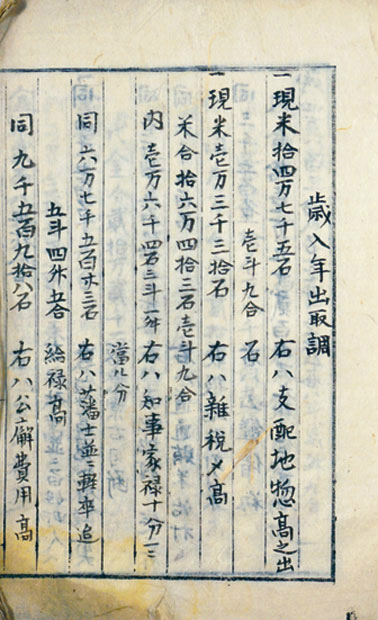 歳入年出取調
一現米拾四万七千五石 右ハ支配地惣高之出
壱斗九合 石
一現米壱万三千三拾石 右ハ雜税〆高
米合拾六万四拾三石壱斗九合
内 壱万六千四石三斗一升 右ハ知事家禄十分一ニ
當ル分
同 六万七千五百廿三石 右ハ藩士並ニ軽卒迄
五斗四升五合 給禄高
同 九千五百九拾八石 右ハ公廨費用高